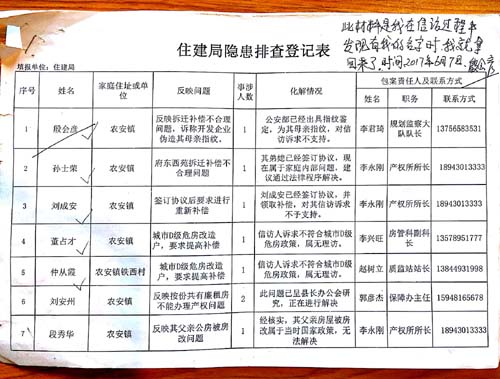 此材料是我在信访过程中
发现有我的名字时,我就拿
回来了,时间2017年6月7日.
住建局隐患排查登记表
填报单位:住建局
序号 姓名 家庭住址或单位 反映问题 事涉人数 化解情况 包案责任人及联系方式
姓名 职务 联系方式
1 殷会彦 农安镇 反映拆迁补偿不合理问题,诉称开发企业伪造其母亲指纹。 1 公安部已经出具指纹鉴定,为其母亲指纹,对信访诉求不支持。 李君琦 规划监察大队队长 13756583531
2 孙士荣 农安镇 府东西苑拆迁补偿不合理问题 1 其弟媳已经签订协议,现在属于家庭内部问题,建议通过法律程序解决。 李永刚 产权所所长 18943013333
3 刘成安 农安镇 签订协议后要求进行重新补偿 1 刘成安已经签订协议,并领取补偿,对其信访诉求不予支持。 李永刚 产权所所长 18943013333
4 董占才 农安镇 城市D级危房改造户,要求提高补偿 1 信访人诉求不符合城市D级危房政策,属无理访。 李兴旺 房管科副科长 13578951777
5 仲从霞 农安镇铁西村 城市D级危房改造户,要求提高补偿 1 信访人诉求不符合城市D级危房政策,属无理访。 赵树立 质监站站长 13844931998
6 刘安州 农安镇 反映按份共有廉租房不能办理产权问题 2 此问题已呈县长办公会研究,正在进行解决 郭彦杰 保障办主任 15948165678
7 段秀华 农安镇 反映其父亲公房被房改问题 1 经核实,其父亲房屋被房改属于当时国家政策,无法解决 李永刚 产权所所长 18943013333